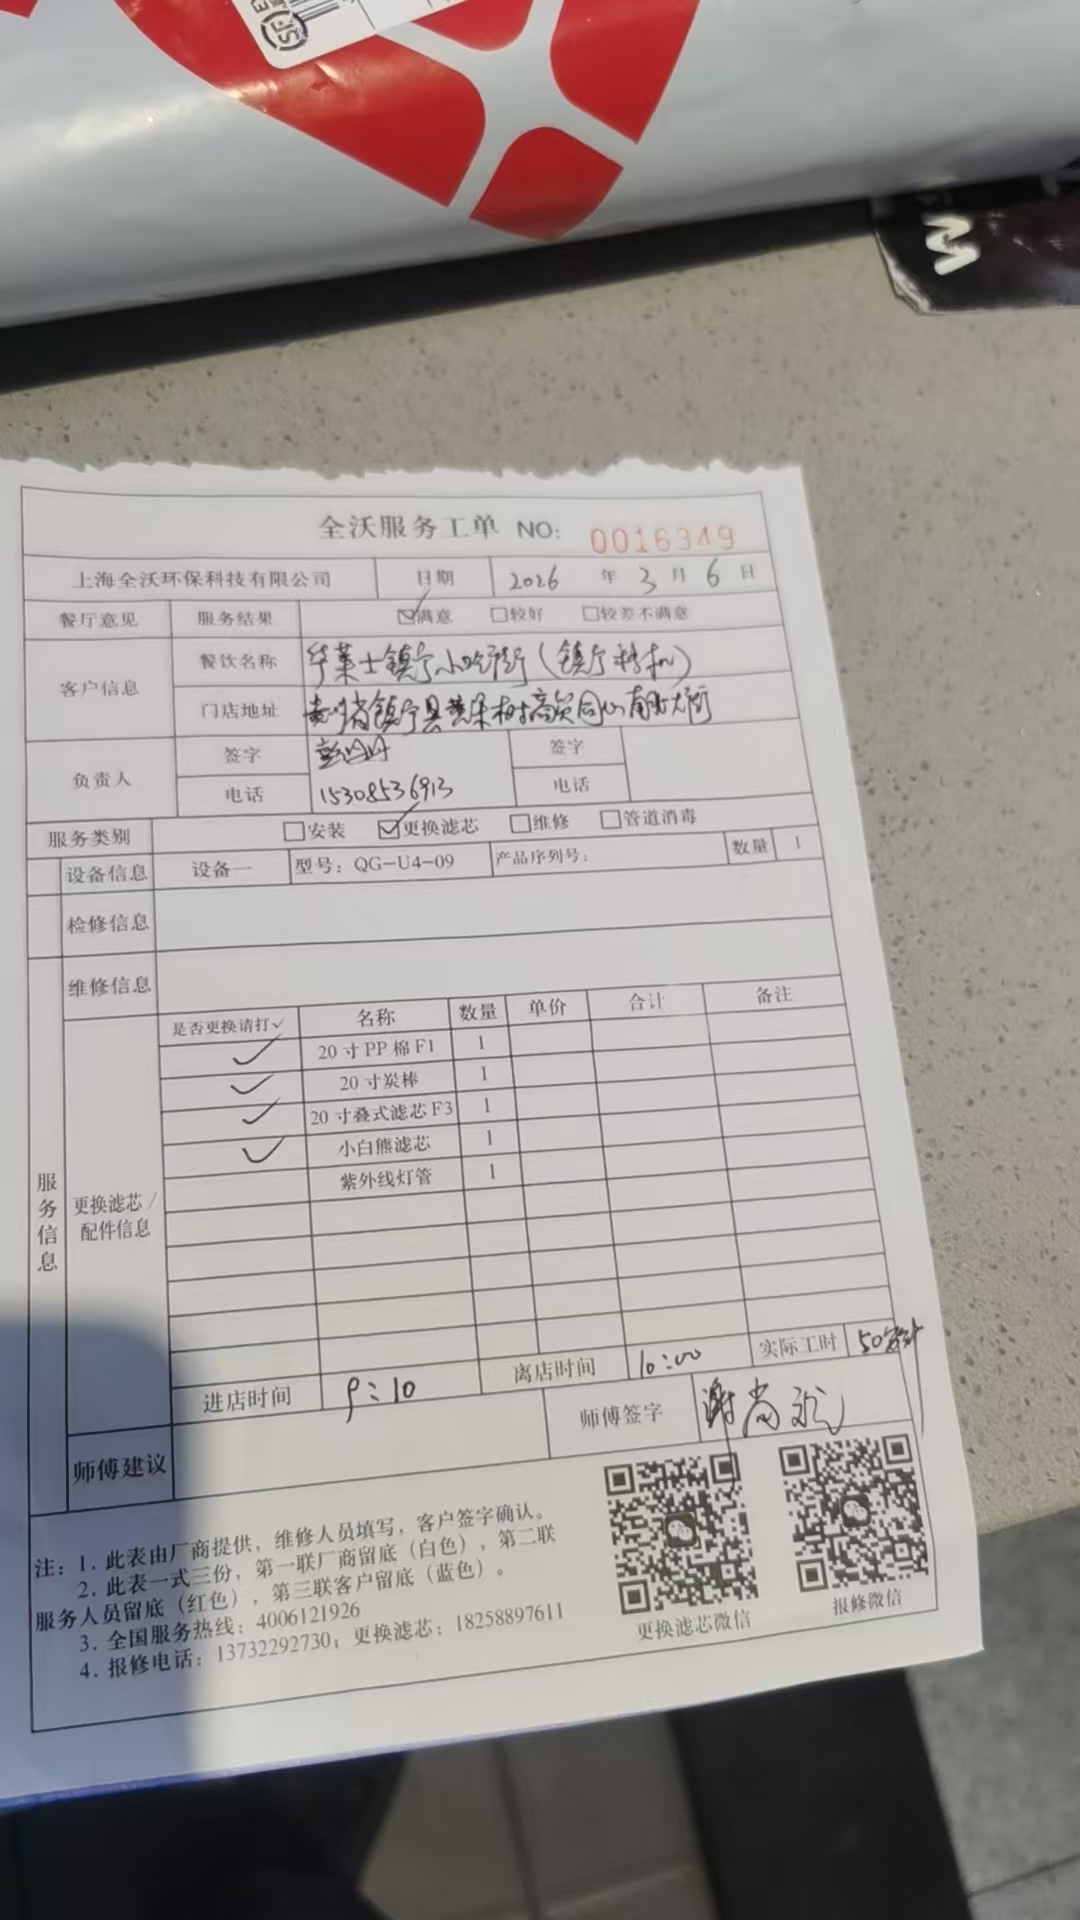 全沃服务工单 NO: 0016349
上海全沃环保科技有限公司 日期 2026 年 3 月 6 日
餐厅意见 服务结果 ☑满意 □较好 □较差不满意
客户信息 餐饮名称 华莱士镇宁小吃街(镇宁转机)
门店地址 贵州省镇宁县黄果树商贸同心南北大街
负责人 签字 签字
电话 15308536913 电话
服务类别 □安装 ☑更换滤芯 □维修 □管道消毒
设备信息 设备一 型号: QG-U4-09 产品序列号: 数量 1
检修信息
维修信息
服务信息
更换滤芯/配件信息
是否更换请打✓ 名称 数量 单价 合计 备注
✓ 20寸PP棉F1 1
✓ 20寸炭棒 1
✓ 20寸叠式滤芯F3 1
✓ 小白熊滤芯 1
紫外线灯管 1
进店时间 9:10 离店时间 10:00 实际工时 50分钟
师傅建议 师傅签字 谢尚
注: 1. 此表由厂商提供, 维修人员填写, 客户签字确认。
2. 此表一式三份, 第一联厂商留底(白色), 第二联
服务人员留底(红色), 第三联客户留底(蓝色)。
3. 全国服务热线: 4006121926
4. 报修电话: 13732292730; 更换滤芯: 18258897611
更换滤芯微信 报修微信